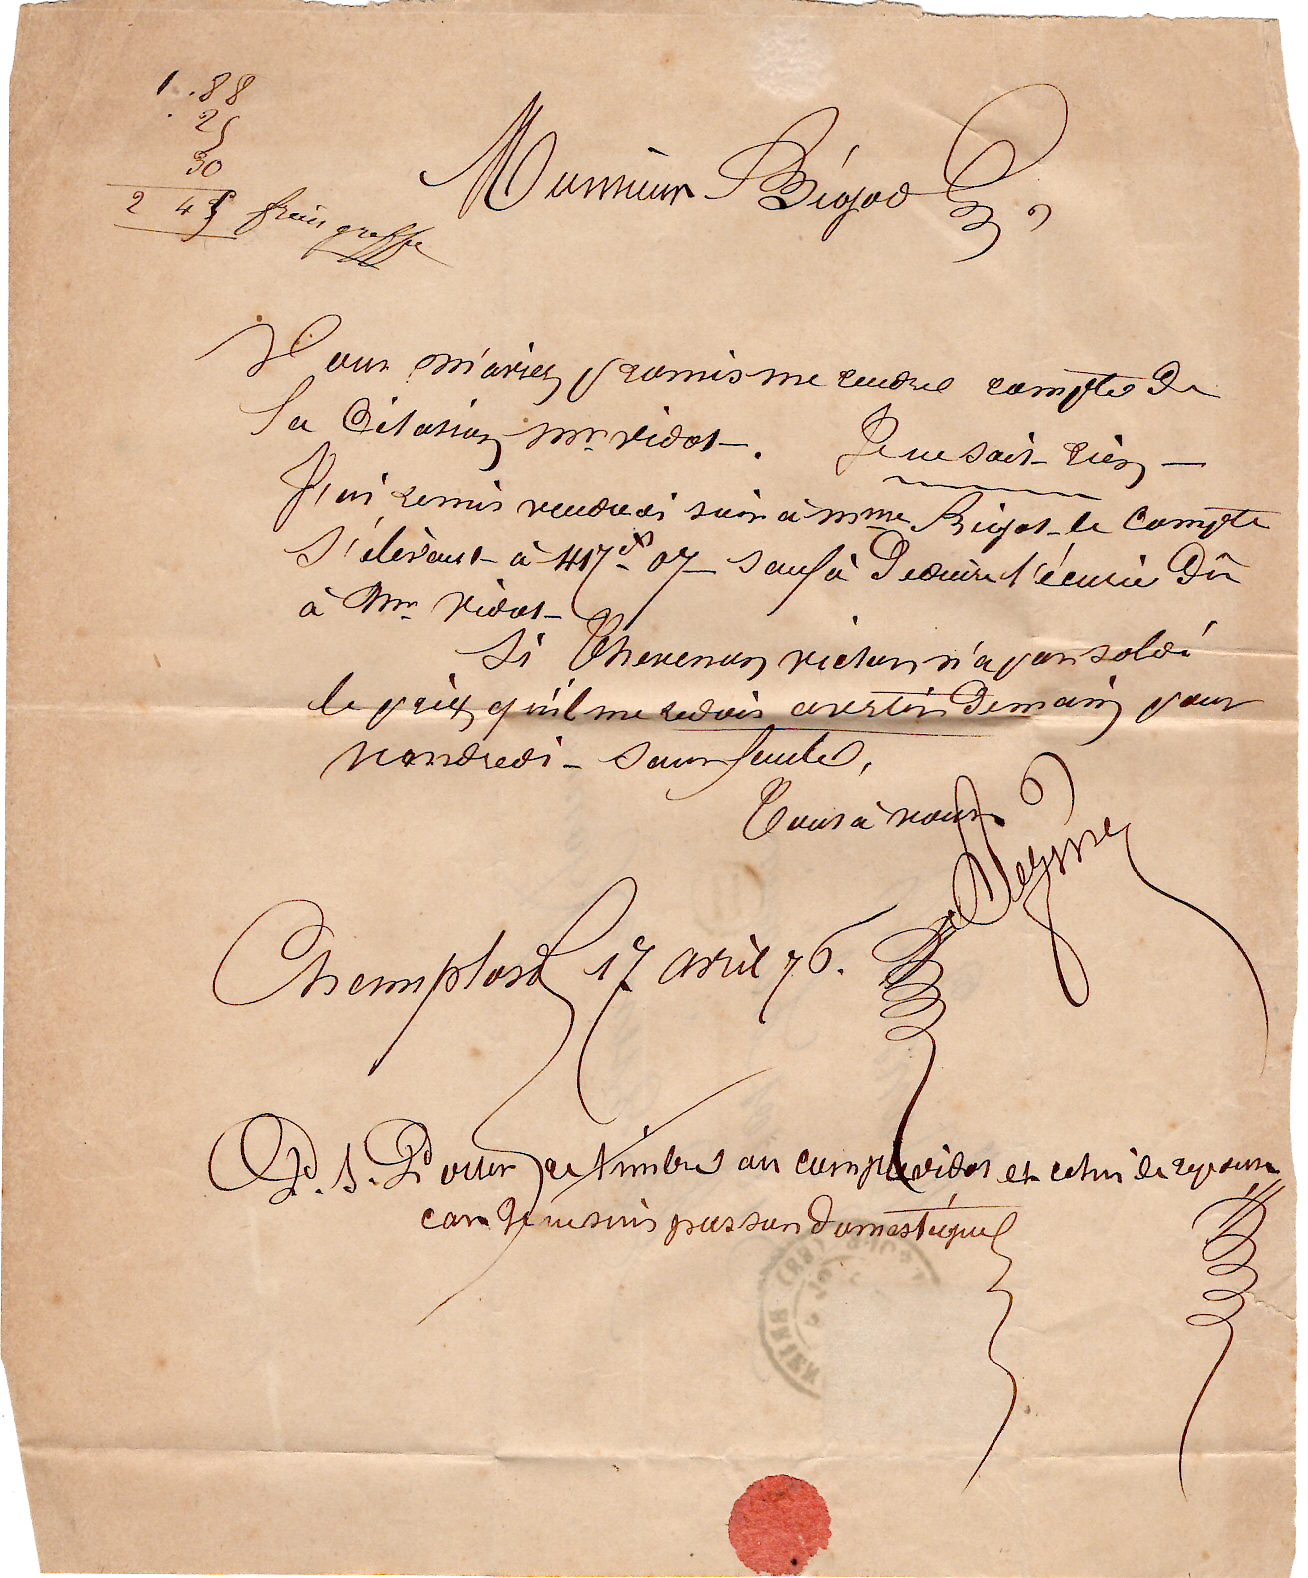 1.88
25
30
2 43 frais greffe
Monsieur Bigod
Vous m'aviez promis me rendre compte de
la Citation Mr vidot. Je ne sait rien —
J'ai remis vendredi soir à Mme Bigot le Compte
s'élevant à 417 07 sauf à Deduire l'écurie Dû
à Mr vidot
Si Thevenon victor n'a pas soldé
le prix qu'il me redois avertir Demain pour
vendredi - sans fautes,
Tout à vous
Champlost 17 avril 76.
P.S. Porter ce timbres au compte vidot et celui de reponse
car Je ne suis pas son Domestique
(88)